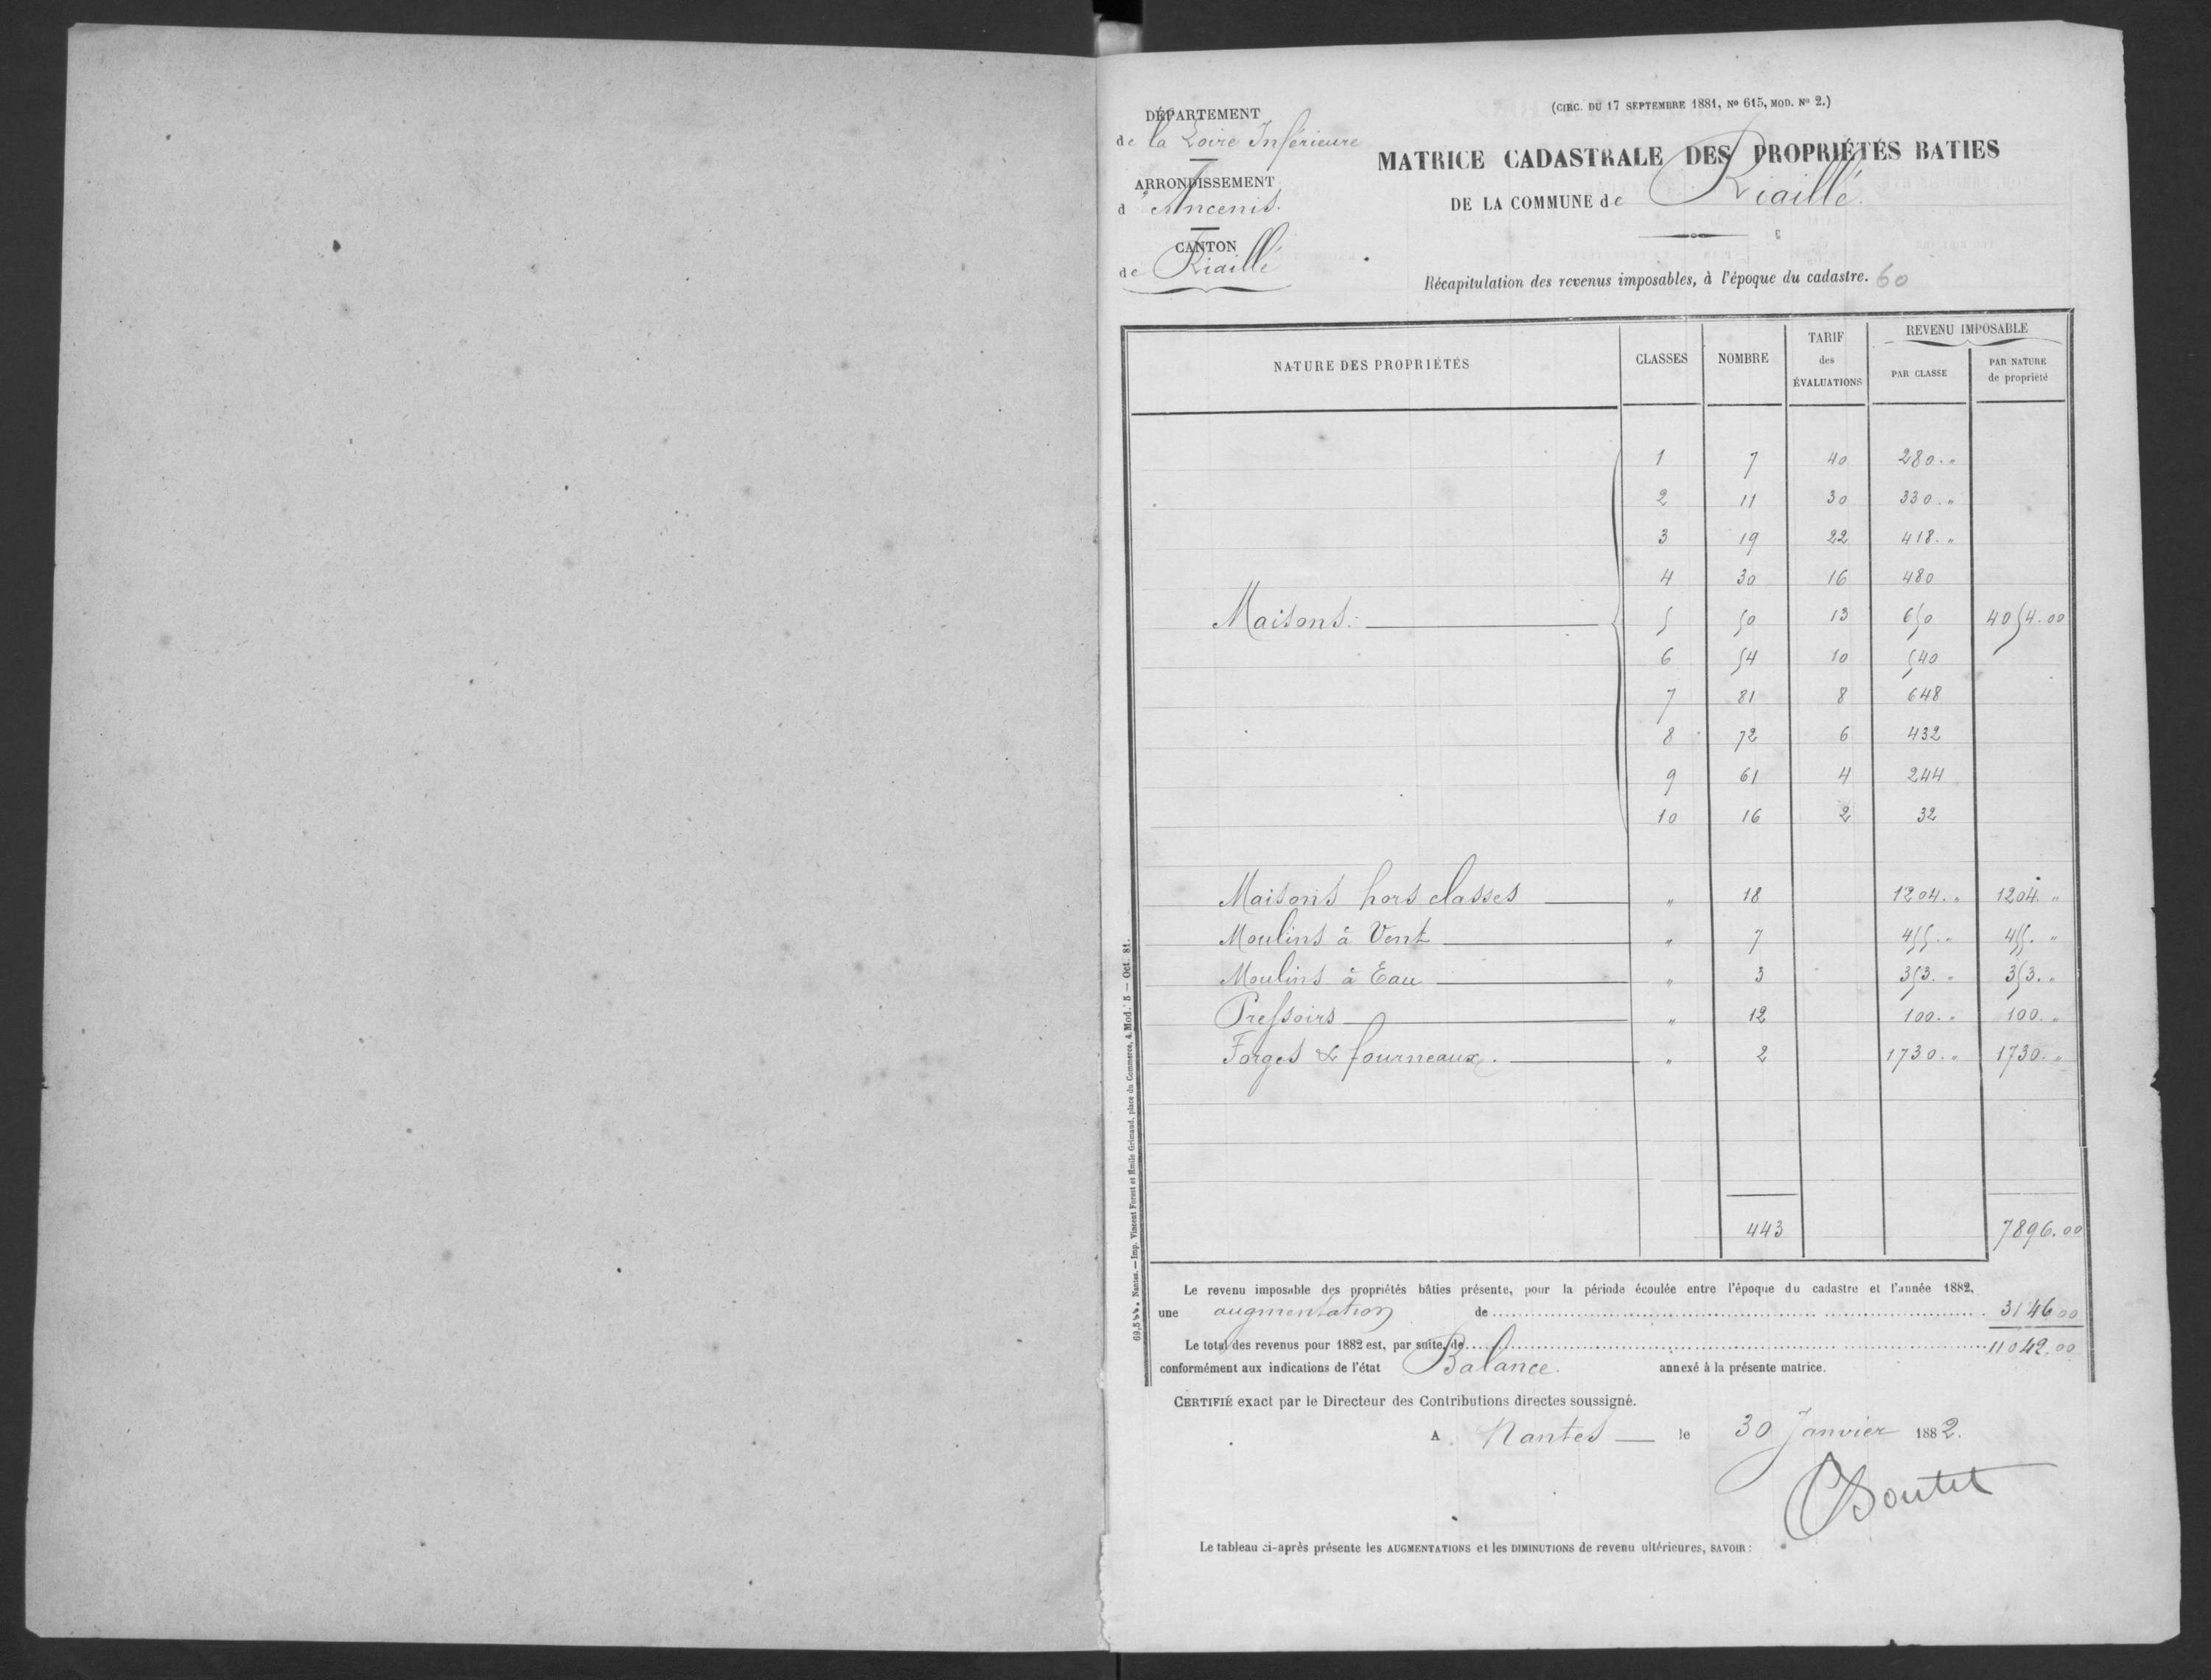 DÉPARTEMENT
de la Loire Inférieure
ARRONDISSEMENT
d'Ancenis.
CANTON
de Riaillé
(CIRC. DU 17 SEPTEMBRE 1881, No 615, MOD. No 2.)
MATRICE CADASTRALE DES PROPRIÉTÉS BATIES
DE LA COMMUNE de Riaillé.
Récapitulation des revenus imposables, à l'époque du cadastre. 60
NATURE DES PROPRIÉTÉS CLASSES NOMBRE TARIF des ÉVALUATIONS REVENU IMPOSABLE
PAR CLASSE PAR NATURE de propriété
1 7 40 280. "
2 11 30 330. "
3 19 22 418. "
4 30 16 480
Maisons. 5 50 13 650 4054.00
6 54 10 540
7 81 8 648
8 72 6 432
9 61 4 244
10 16 2 32
Maisons hors classes " 18 1204. " 1204. "
Moulins à Vent " 7 455. " 455. "
Moulins à Eau " 3 353. " 353. "
Pressoirs " 12 100. " 100. "
Forges & fourneaux. " 2 1730. " 1730. "
443 7896.00
Le revenu imposable des propriétés bâties présente, pour la période écoulée entre l'époque du cadastre et l'année 1882,
une augmentation de 3146 00
Le total des revenus pour 1882 est, par suite, de 11042.00
conformément aux indications de l'état Balance. annexé à la présente matrice.
CERTIFIÉ exact par le Directeur des Contributions directes soussigné.
A Nantes le 30 Janvier 1882.
Boutet
Le tableau ci-après présente les AUGMENTATIONS et les DIMINUTIONS de revenu ultérieures, SAVOIR :
Nantes. — Imp. Vincent Forest et Émile Grimaud, place du Commerce, 4. Mod. 5 — Oct. 81.